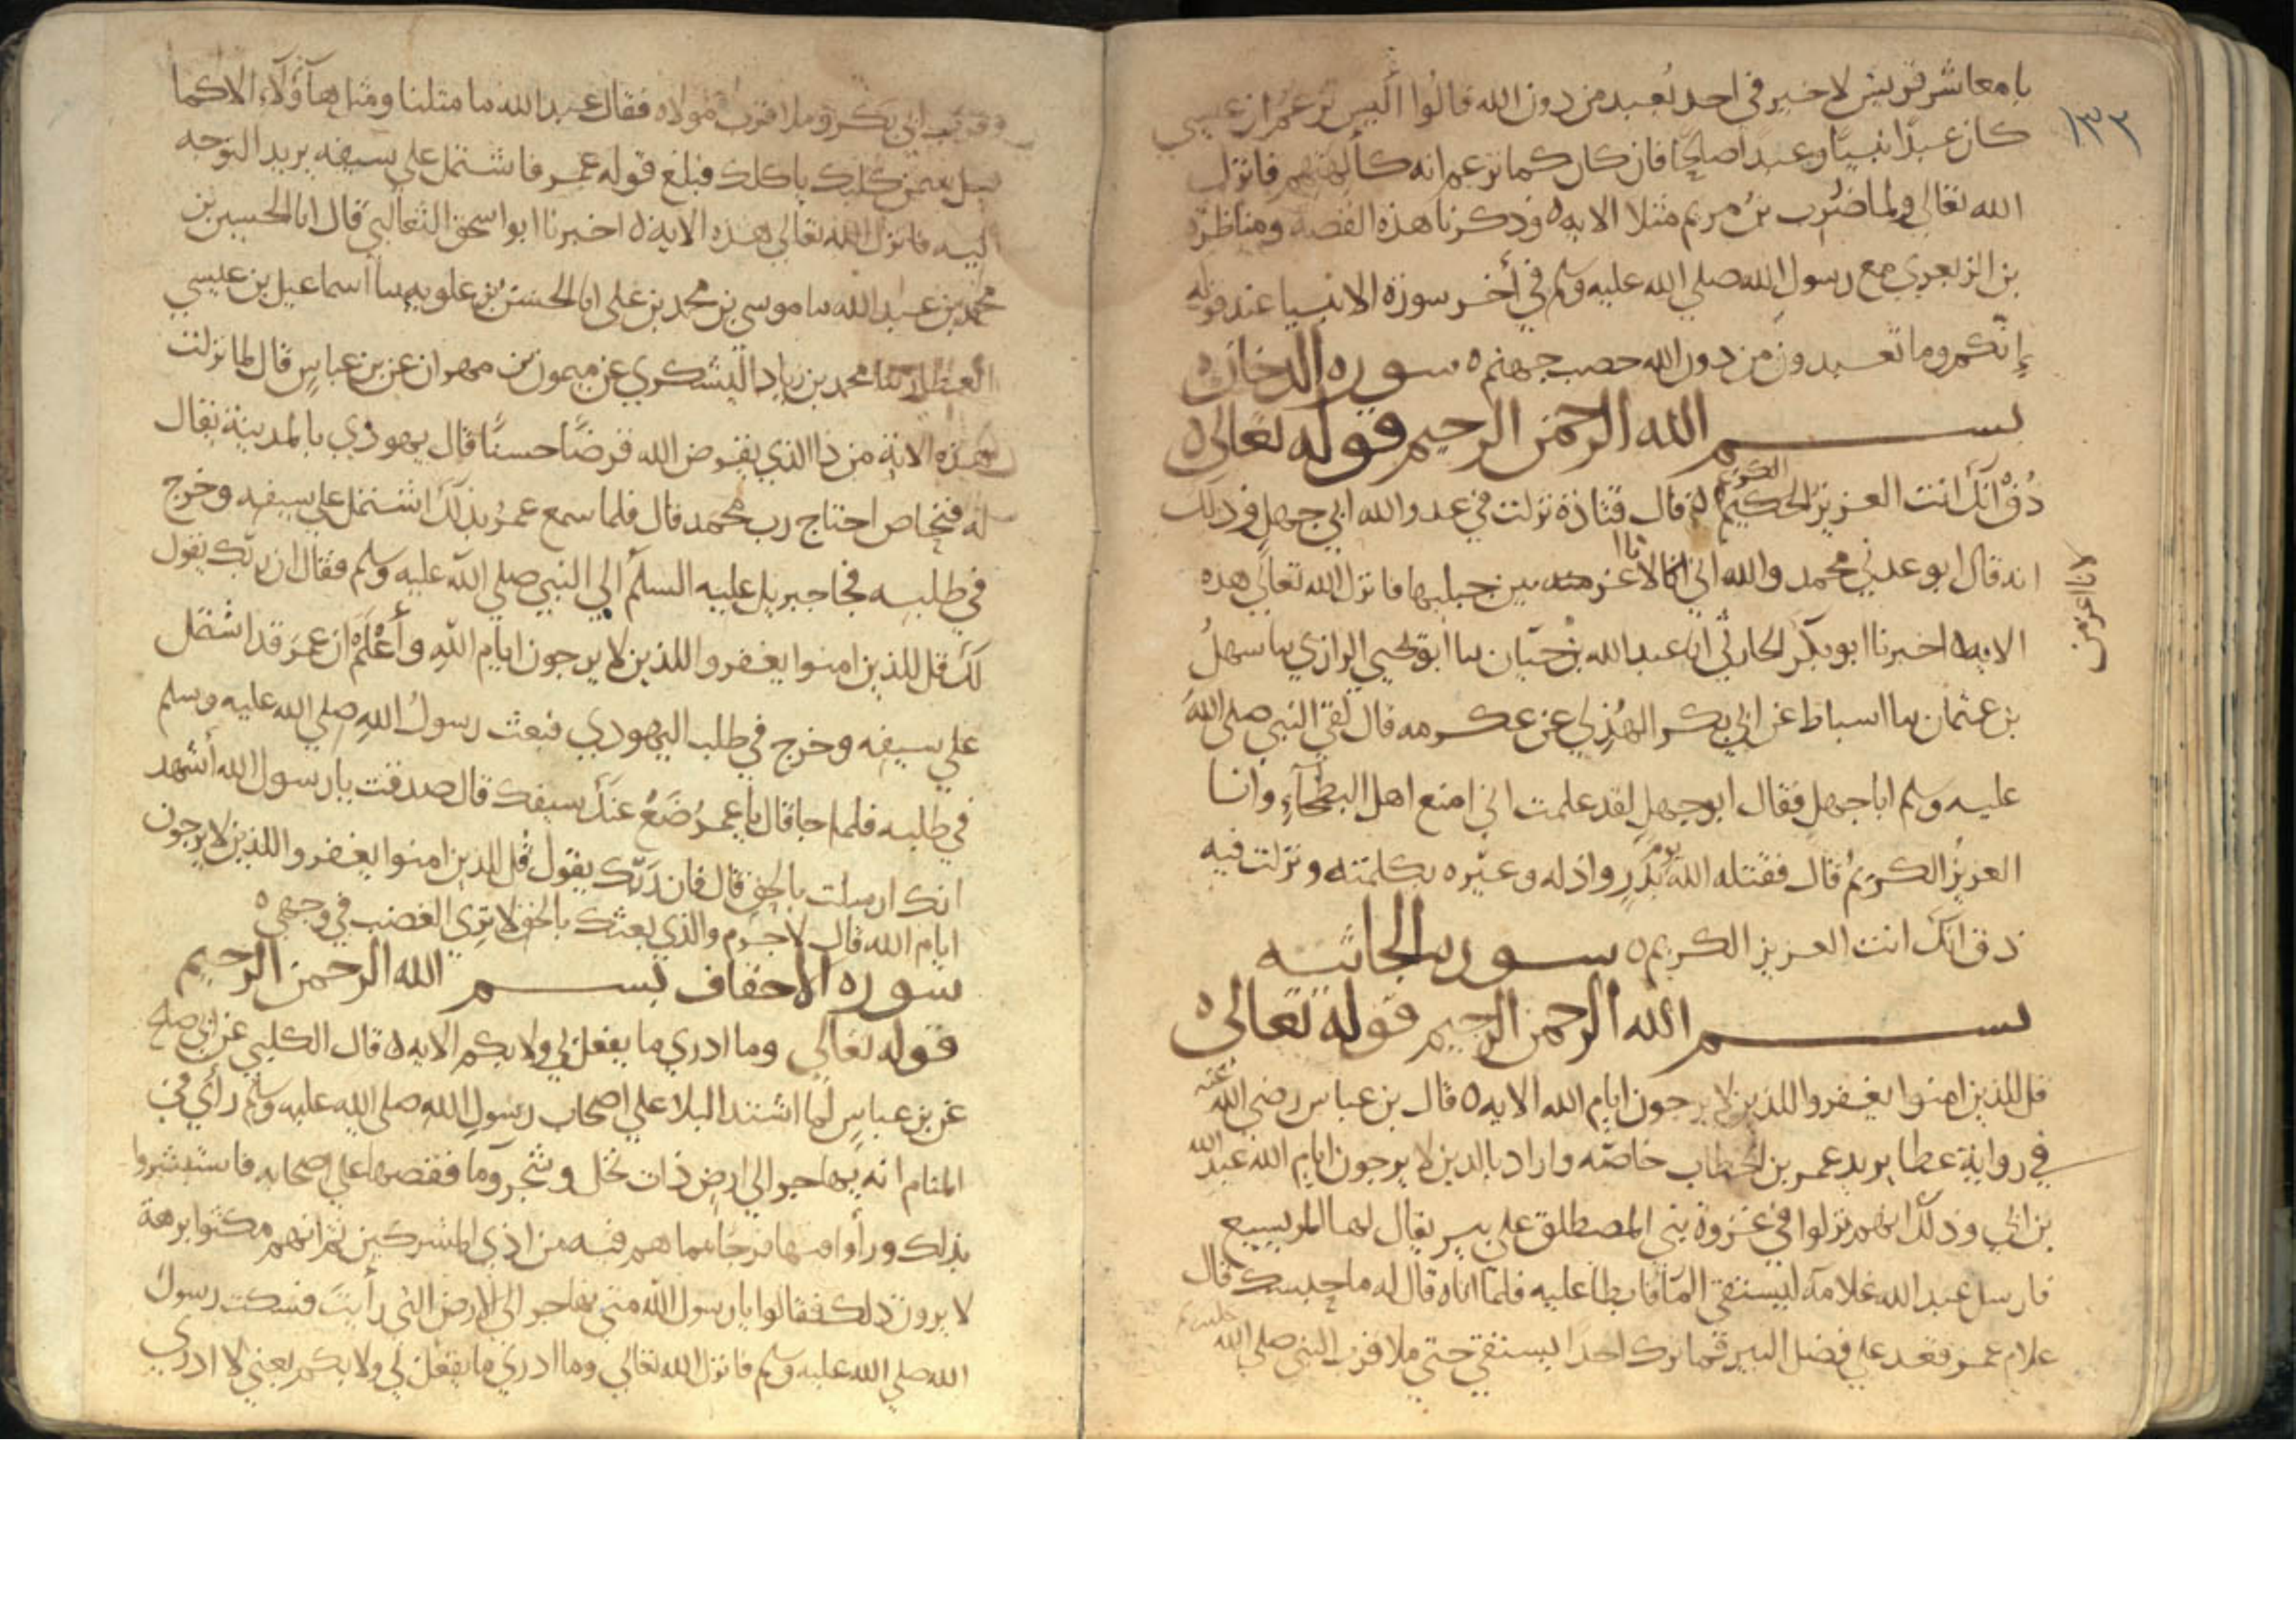 ١٣٣
يا معاشر قريش لا خير في احد يُعبد من دون الله قالوا أليس تزعم ان عيسى
كان عبدًا نبيًّا وعبدًا صالحًا فان كان كما تزعم انه كألهتهم فانزل
الله تعالى ولما ضُرب بنُ مريم مثلا الايه ٥ وذكرنا هذه القصة ومناظرة
بن الزبعري مع رسول الله صلي الله عليه وسلم في أخر سورة الانبيا عند قوله
إنّكم وما تعبدون من دون الله حصب جهنم ٥ سوره الدخان ٥
بسم الله الرحمن الرحيم قوله تعالى ٥
ذُقْ انّكَ انت العزيز الكريم الحكيم ٥ قال قتادة نزلت في عدو الله ابي جهلٍ وذلك
انه قال ابوعدني محمد والله اني انا لاعز من بين جبليها فانزل الله تعالى هذه
لانا اعز من
الايه ٥ اخبرنا ابو بكر الحارثي انا عبد الله بنُ حيّان نا ابو يحيي الرازي نا سهلُ
بن عثمان نا اسباط عن ابي بكر الهُذلي عن عكرمه قال لقي النبي صلى الله
عليه وسلم ابا جهلٍ فقال ابو جهلٍ لقد علمت اني امنع اهل البطحآءِ وانا
العزيزُ الكريمُ قال فقتله الله يوم بدرٍ واذله وعيّره بكلمته ونزلت فيه
ذق انك انت العزيز الكريم ٥ سورة الجاثيه
بسم الله الرحمن الرحيم قوله تعالى ٥
قل للذين امنوا يغفروا للذين لا يرجون ايام الله الايه ٥ قال بن عباس رضى الله عنه
في رواية عطا يريد عمر بن الخطاب خاصّه واراد بالذين لا يرجون ايام الله عبد الله
بن ابي وذلك انهم نزلوا في غزوة بني المصطلق علي بير يقال لها المريسيع
فارسل عبد الله غلامه ليستقي الما فابطا عليه فلما اتاه قال له ما حبسك قال
غلام عمر قعد علي فضل البير فما ترك احدًا يستقي حتي ملا قرب النبي صلى الله
وقرب ابي بكر وملا قرب مولاه فقال عبد الله ما مثلنا ومثل هآؤلآء الا كما
قيل سمن كلبك ياكلك فبلغ قوله عمر فاشتمل علي سيفه يريد التوجه
اليه فانزل الله تعالى هذه الايه ٥ اخبرنا ابو اسحق الثعالبي قال انا الحسين بن
محمد بن عبد الله نا موسي بن محمد بن علي انا الحسن بن علويه نا اسماعيل بن عيسي
العطار نا محمد بن زياد اليشكري عن ميمون بن مهران عن بن عباسٍ قال لما نزلت
هذه الاية من ذا الذي يقرض الله قرضًا حسنًا قال يهودي بالمدينة يقال
له فنحاص احتاج رب محمد قال فلما سمع عمرُ بذلك اشتمل علي سيفه وخرج
في طلبه فجا جبريل عليه السلم الي النبي صلي الله عليه وسلم فقال ان ربك يقول
لك قل للذين امنوا يغفروا للذين لا يرجون ايام اللهِ وأعْلَمْ ان عمرَ قد اشتمل
علي سيفه وخرج في طلب اليهودي فبعث رسولُ اللهِ صلي الله عليه وسلم
في طلبه فلما جا قال يا عمرُ ضَعْ عنك سيفك قال صدقت يا رسول الله أشهد
انك ارسلت بالحق قال فان ربّك يقول قُل للذين امنوا يغفروا للذين لا يرجون
ايام الله قال لا جرم والذي بعثك بالحق لا تري الغضب في وجهي ٥
سوره الاحقاف بسم الله الرحمن الرحيم
قوله تعالي وما ادري ما يفعل بي ولا بكم الايه ٥ قال الكلبي عن ابي صلح
عن بن عباسٍ لما اشتد البلا علي اصحاب رسولِ الله صلى الله عليه وسلم رأي في
المنام انه يهاجر الي ارضٍ ذات نخل وشجر وما فقصها علي اصحابه فاستبشروا
بذلك ورأوا فيها فرجًا مما هم فيه من اذي المشركين ثم انهم مكثوا برهة
لا يرون ذلك فقالوا يا رسول الله متي نهاجر الي الارض التي رأيتَ فسكت رسولُ
الله صلي الله عليه وسلم فانزل الله تعالي وما ادري ما يفعل بي ولا بكم يعني لا ادري